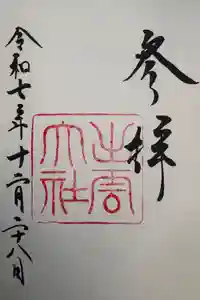 参拝
出雲
大社
令和七年十二月二十八日